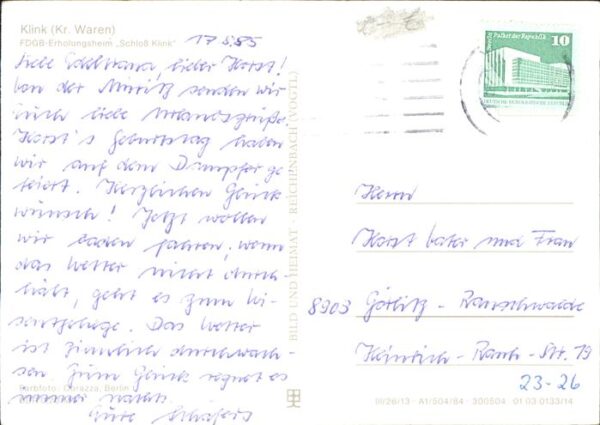 Klink (Kr. Waren)
FDGB-Erholungsheim „Schloß Klink"
17.5.85
Liebe Edeltraud, lieber Horst!
Von der Müritz senden wir
Euch liebe Urlaubsgrüße.
Horst's Geburtstag haben
wir auf dem Dampfer ge
feiert. Herzlichen Glück
wunsch! Jetzt wollen
wir baden fahren, wenn
das Wetter mitert durch-
hält, geht es zum Wi-
sentgehege. Das Wetter
ist ziemlich durchwach-
sen zum Glück regnet es
immer nachts.
Gute
Farbfoto: Darazza, Berlin
BILD UND HEIMAT · REICHENBACH (VOGTL)
Palast der Republik
10
DEUTSCHE DEMOKRATISCHE REPUBLIK
Herrn
Horst und Frau
8903 Görlitz - Rauschwalde
Heinrich-Rauh-Str. 79
23-26
III/26/13 · A1/504/84 · 300504 01 03 0133/14